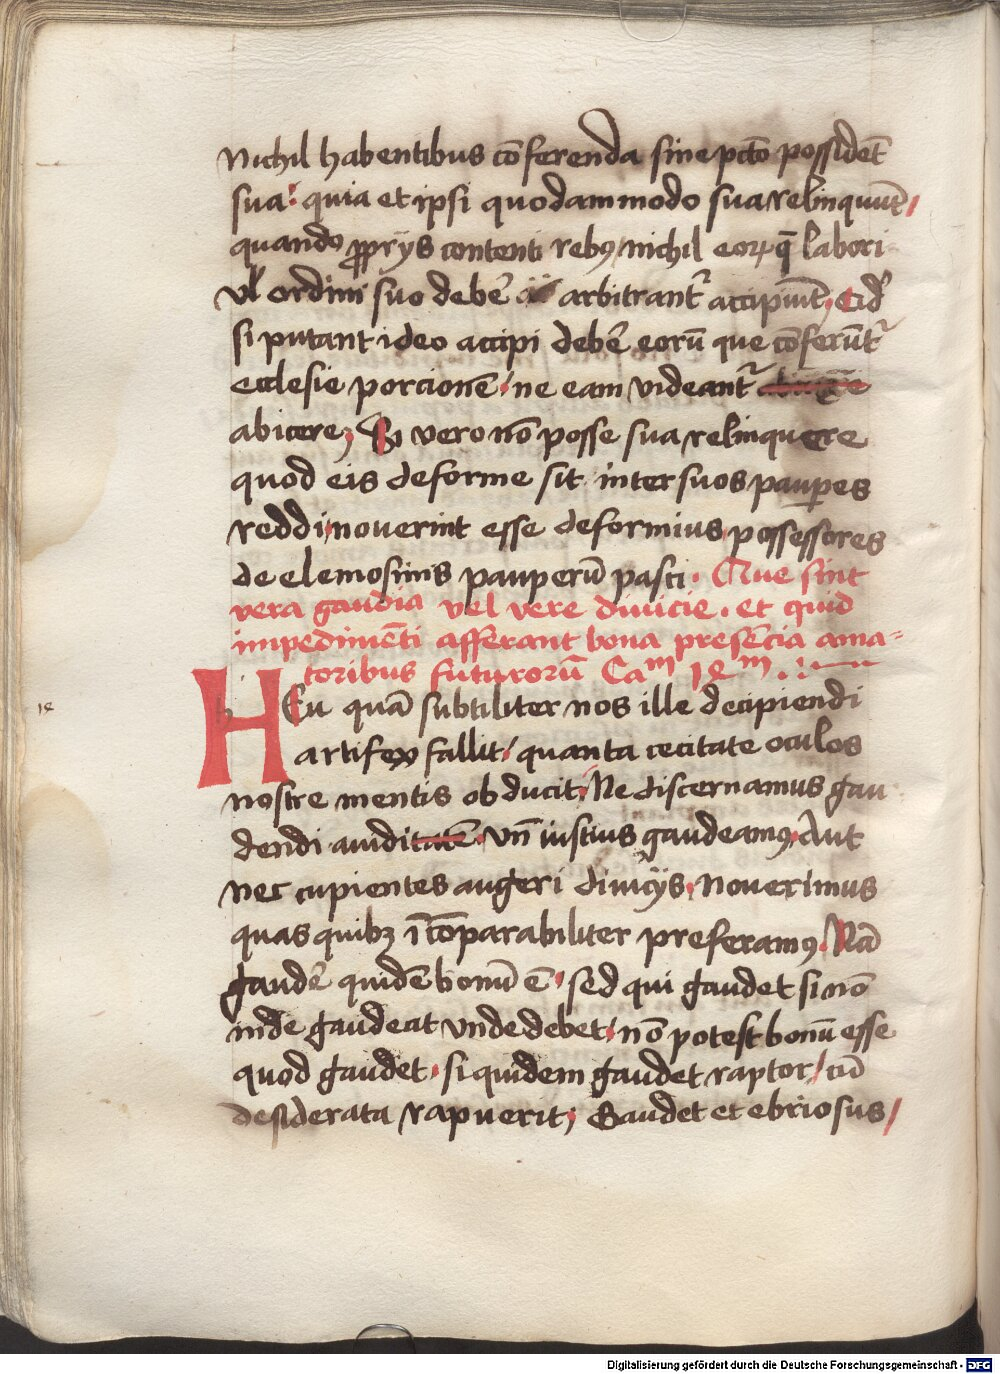 Nichil habentibus cōferenda sine pctō possidēt
sua: quia et ipsi quodammodo sua relinquūt,
quando ꝓprijs contenti rebꝯ/nichil eoꝝ q̄ labori
vl' ordini suo debēr arbitrant͛ accipiūt, Cid'
si putant ideo accipi debēr eorū que cōferūt͛
ecclesie porcionē/ne eam videant͛
abicere, Si vero nō posse sua relinquere
quod eis deforme sit inter suos pauꝑes
reddi, noverint esse deformius possessores
de elemosinis pauperū pasci. Que sint
vera gaudia vel vere divicie. et quid
impedimēti afferant bona presēcia ama=
toribus futurorū Caᵐ 1ꝭᵐ
HEu quā subtiliter nos ille decipiendi
artifex fallit/quanta cecitate oculos
nostre mentis obducit, Ne discernamus gau
dendi auiditatē. vn̄ iustius gaudeamꝯ, Aut
nec cupientes augeri divicijs, Noverimus
quas quibꝫ ī cōparabiliter preferamꝯ. Nā
gaudēr quidē bonū ē/sed qui gaudet si nō
inde gaudeat vnde debet, nō potest bonū esse
quod gaudet. siquidem gaudet raptor/cū
desiderata rapuerit, Gaudet et ebriosus/
Digitalisierung gefördert durch die Deutsche Forschungsgemeinschaft - DFG